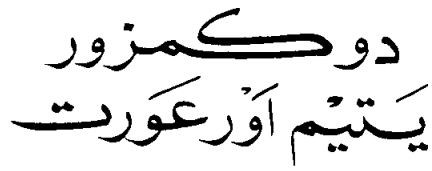 دو کمزور
یَتیْم اَوْر عَورت